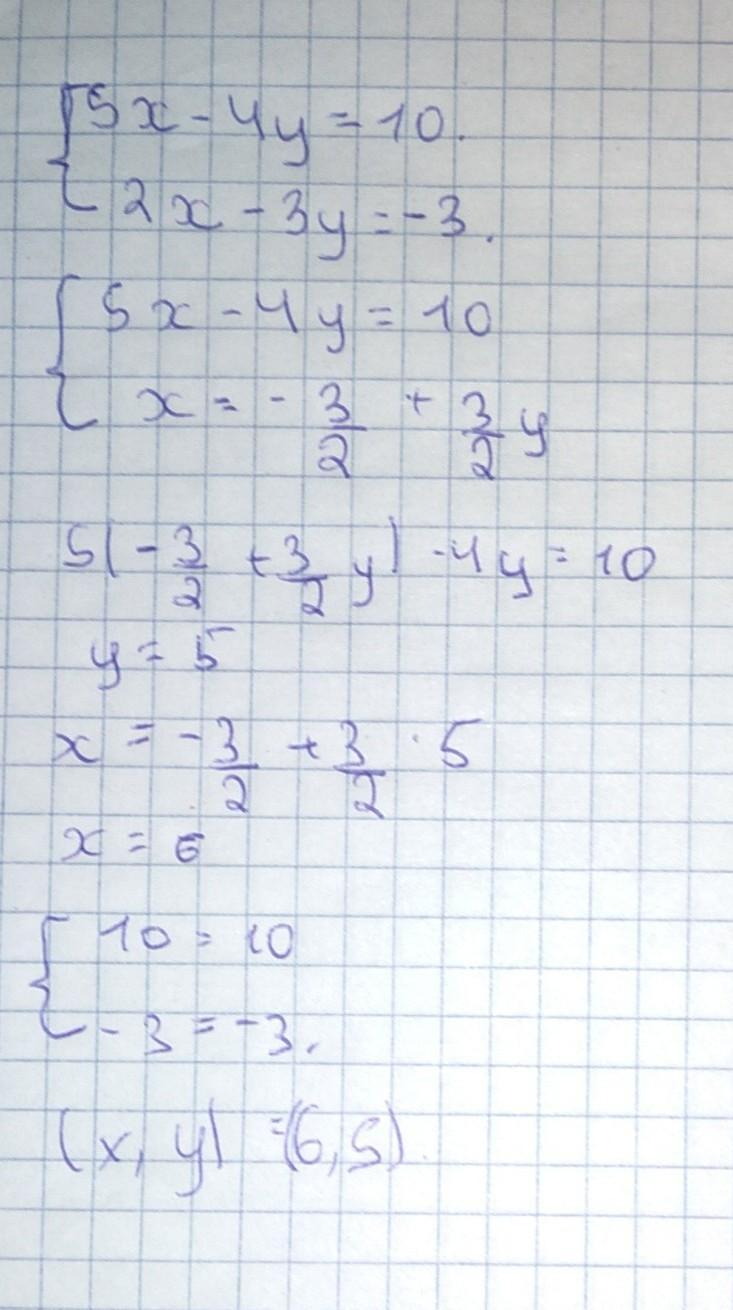 {5x - 4y = 10.
2x - 3y = -3.
{5x - 4y = 10
x = - 3/2 + 3/2 y
5(- 3/2 + 3/2 y) - 4y = 10
y = 5
x = - 3/2 + 3/2 · 5
x = 6
{10 = 10
-3 = -3.
(x, y) = (6, 5)